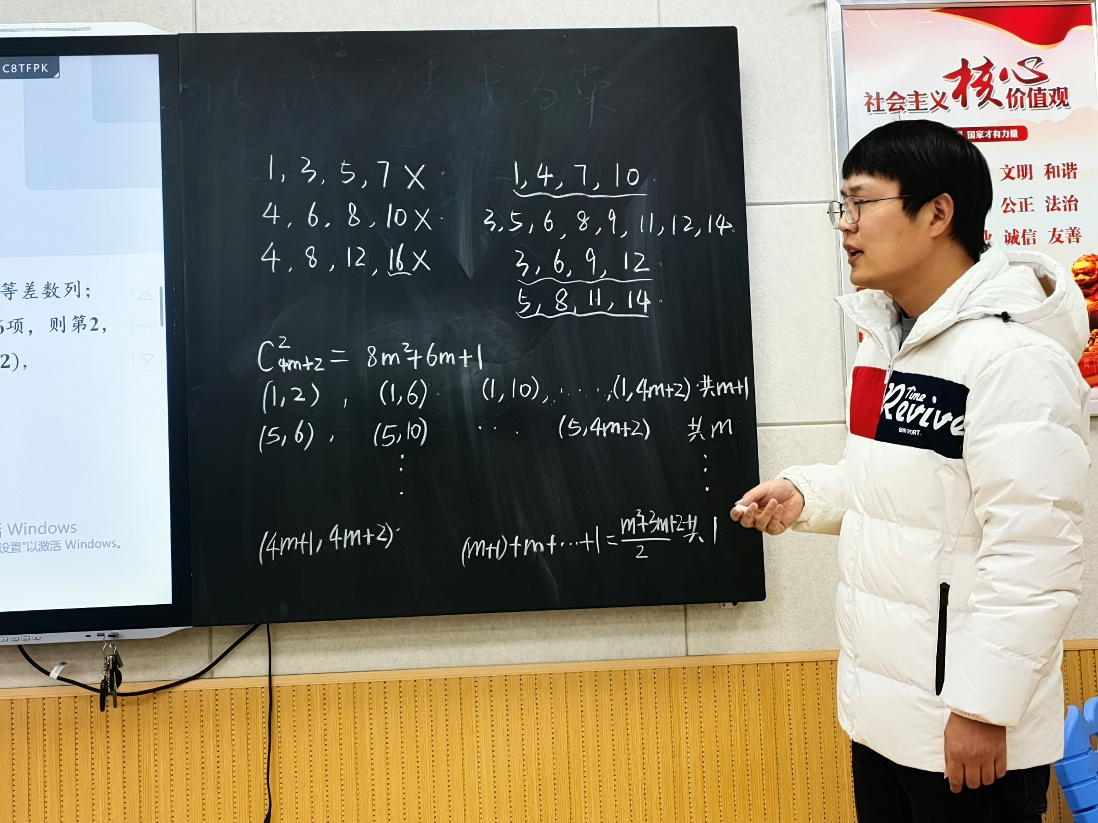 C8TFPK
等差数列；
项，则第2，
2)，
Windows
设置"以激活 Windows。
1, 3, 5, 7 X
4, 6, 8, 10 X
4, 8, 12, 16 X
1, 4, 7, 10
3, 5, 6, 8, 9, 11, 12, 14
3, 6, 9, 12
5, 8, 11, 14
C²₄ₘ₊₂ = 8m²+6m+1
(1, 2), (1, 6) (1, 10), ....., (1, 4m+2) 共m+1
(5, 6), (5, 10) ... (5, 4m+2) 共m
⋮ ⋮
(4m+1, 4m+2) (m+1)+m+...+1 = m²+3m+2 / 2 共1
社会主义核心价值观
国家才有力量
文明 和谐
公正 法治
诚信 友善
Time
Revive